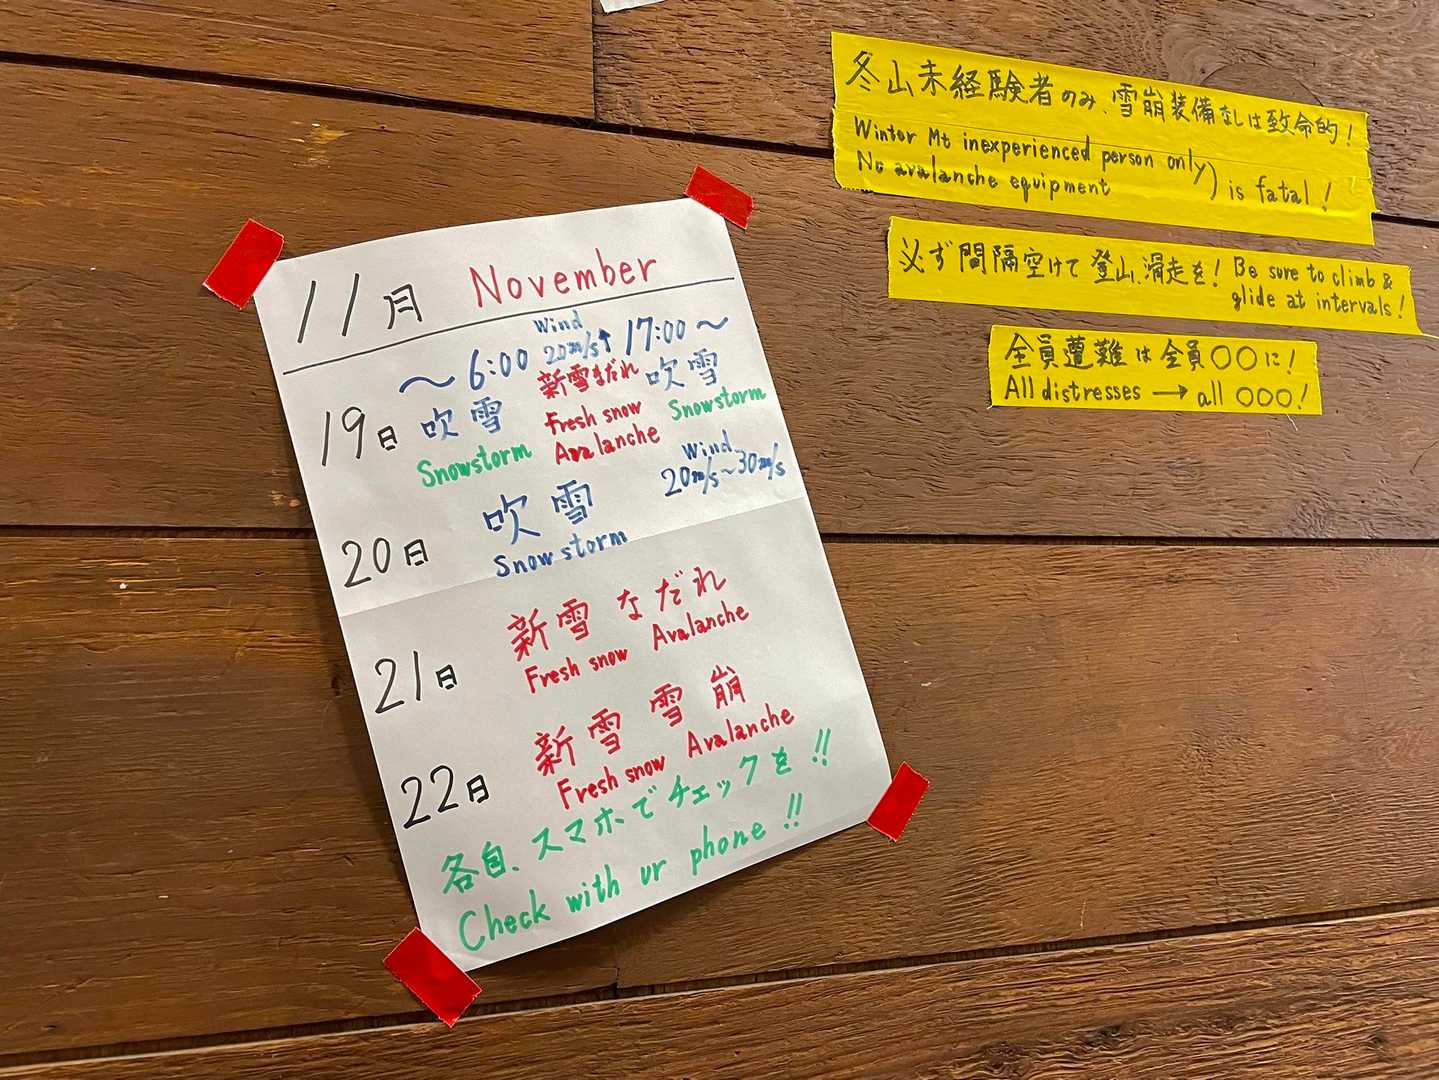 11月 November
19日 〜6:00 吹雪 Snowstorm
Wind 20m/s↑
新雪なだれ
Fresh snow
Avalanche
17:00〜
吹雪
Snowstorm
Wind
20m/s〜30m/s
20日 吹雪
Snow storm
21日 新雪 なだれ
Fresh snow Avalanche
22日 新雪 雪崩
Fresh snow Avalanche
各自、スマホでチェックを!!
Check with ur phone!!
冬山未経験者のみ、雪崩装備なしは致命的!
Winter Mt inexperienced person only
No avalanche equipment
) is fatal!
必ず間隔空けて登山、滑走を! Be sure to climb &
glide at intervals!
全員遭難は全員○○に!
All distresses → all ○○○!